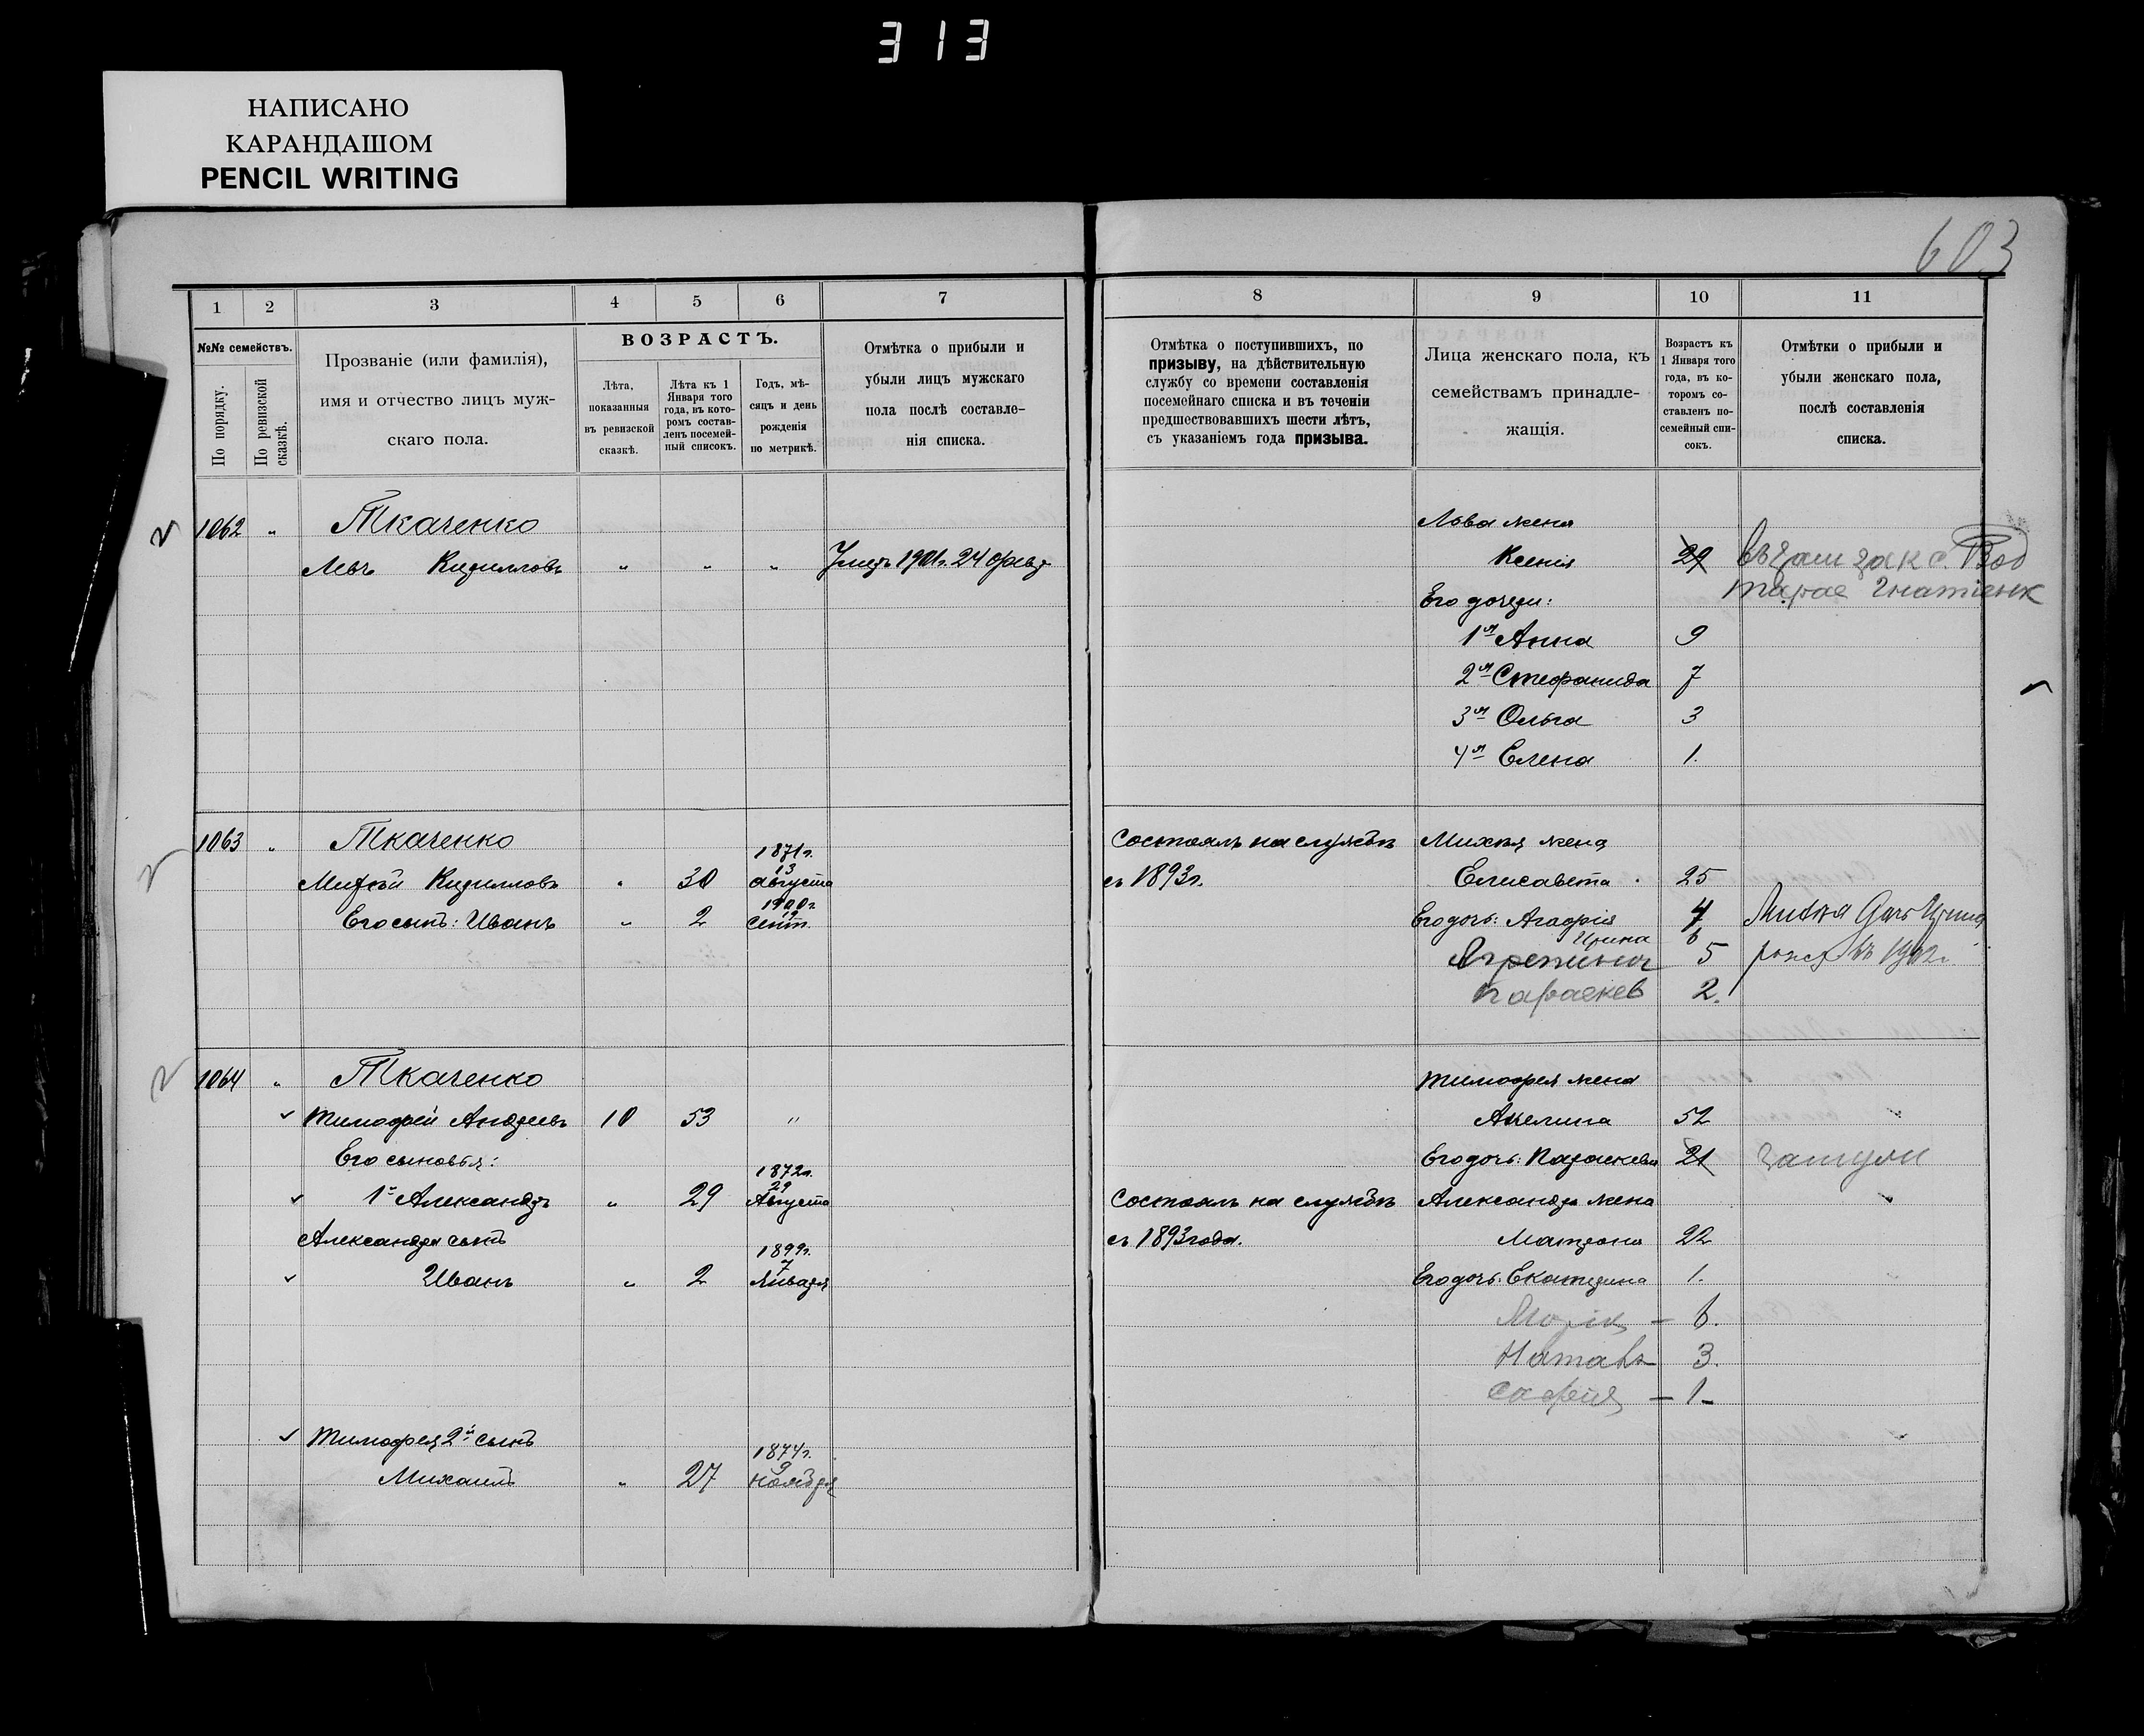 313
НАПИСАНО
КАРАНДАШОМ
PENCIL WRITING
603
1 2 3 4 5 6 7
№№ семействъ.
По порядку.
По ревизской сказкѣ.
Прозваніе (или фамилія),
имя и отчество лицъ муж-
скаго пола.
ВОЗРАСТЪ.
Лѣта,
показанныя
въ ревизской
сказкѣ.
Лѣта къ 1
Января того
года, въ кото-
ромъ состав-
ленъ посемей-
ный списокъ.
Годъ, мѣ-
сяцъ и день
рожденія
по метрикѣ.
Отмѣтка о прибыли и
убыли лицъ мужскаго
пола послѣ составле-
нія списка.
8 9 10 11
Отмѣтка о поступившихъ, по
призыву, на дѣйствительную
службу со времени составленія
посемейнаго списка и въ теченіи
предшествовавшихъ шести лѣтъ,
съ указаніемъ года призыва.
Лица женскаго пола, къ
семействамъ принадле-
жащія.
Возрастъ къ
1 Января того
года, въ ко-
торомъ со-
ставленъ по-
семейный спи-
сокъ.
Отмѣтки о прибыли и
убыли женскаго пола,
послѣ составленія
списка.
1062 " Ткаченко Льва жена
Левъ Кирилловъ " " " Умеръ 1901г. 24 февр. Ксенія 29
Его дочери:
1я Анна 9
2я Стефанида 7
3я Ольга 3
4я Елена 1.
1063 " Ткаченко 1871г. Состоялъ на службѣ Михѣя жена
Михѣй Кирилловъ " 30 13 августа съ 1893г. Елисавета 25
Его сынъ: Иванъ " 2 1900г. 19 сент. Его дочь: Агафія 7 Михѣя дочь Ирина
Ирина 6
5 въ 1902г.
Параскев 2.
1064 " Ткаченко Тимофея жена
Тимофей Андреевъ 10 53 " Акелина 52
Его сыновья: Его дочь: Параскева 21 Замуж
1й Александръ " 29 1872г. 29 Августа Состоялъ на службѣ Александра жена
Александра сынъ съ 1893 года. Матрона 22
Иванъ " 2 1899г. 7 Января Его дочь: Екатерина 1.
Марія — 6.
Натал 3.
Софія — 1 –
Тимофея 2й сынъ
Михаилъ " 27 1874г. 9 ноября